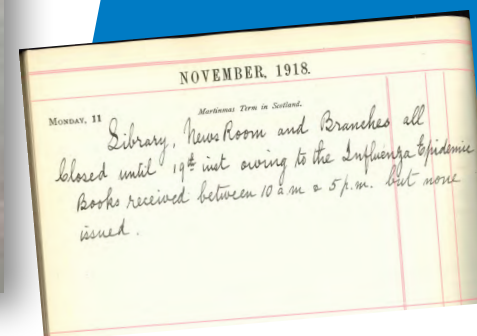 NOVEMBER, 1918.
Martinmas Term in Scotland.
MONDAY, 11
Library, News Room and Branches all
closed until 19th inst owing to the Influenza Epidemic
Books received between 10 a.m & 5 p.m. but none
issued.